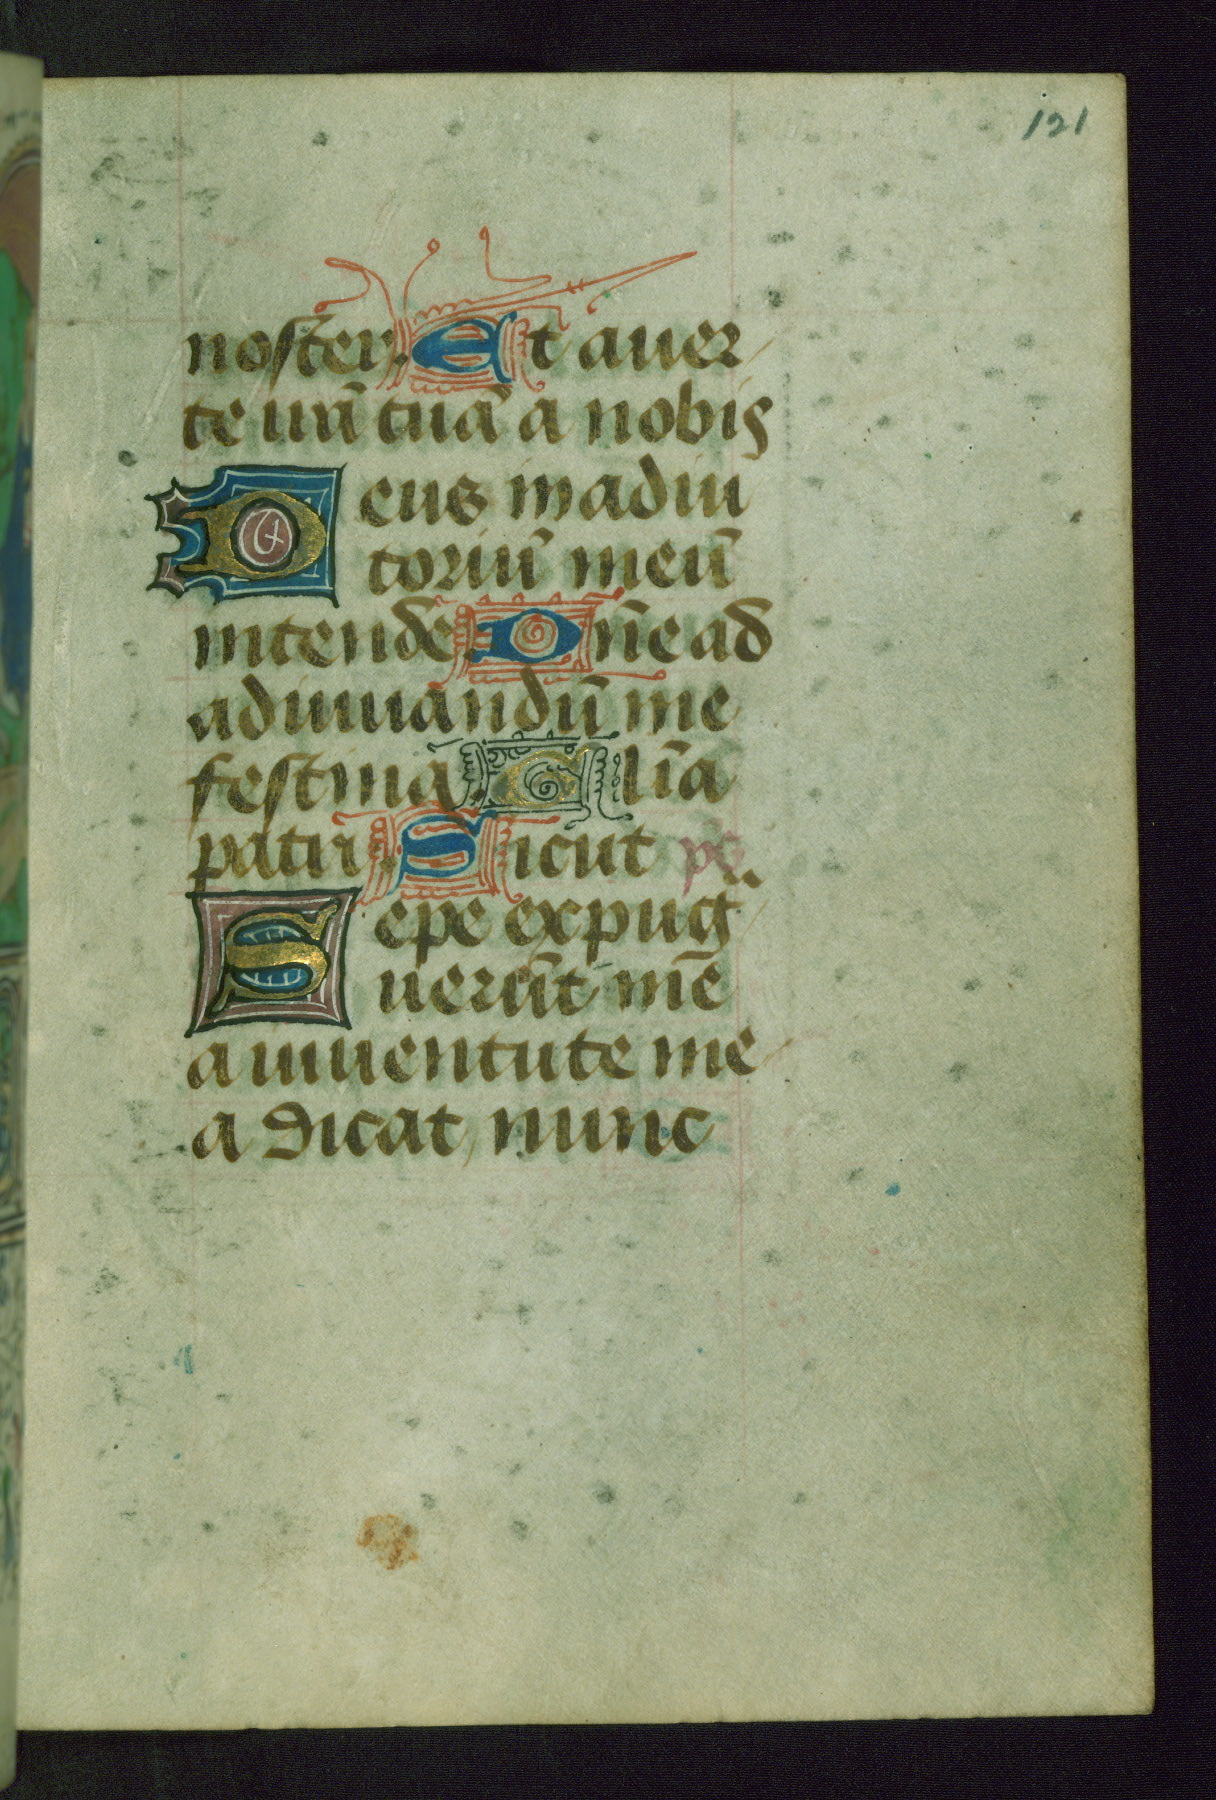 121
noster. Et auer
te irā tuā a nobis
Deus in adiu
toriū meū
intende. Dñe ad
adiuuandū me
festina. Glīa
patri. Sicut ps̄
Sepe expug
uerūt mē
a iuuentute me
a dicat nunc